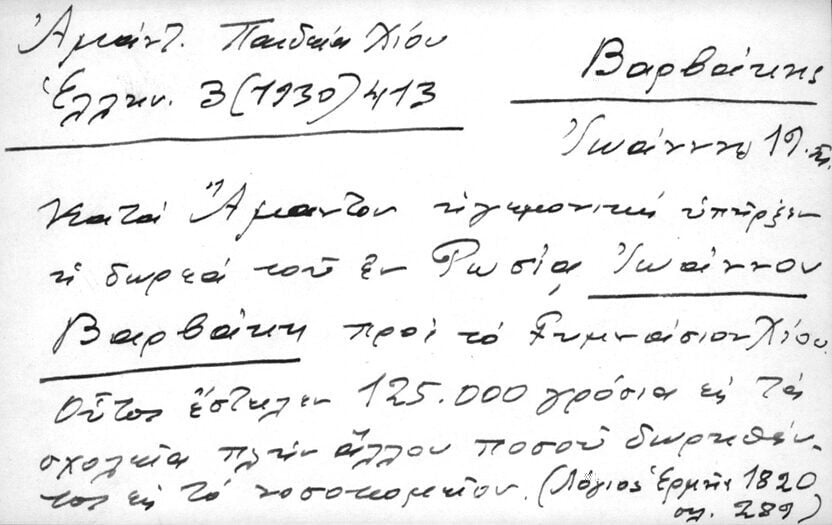 Ἀμάντ. Παιδεία Χίου
Ἑλλην. 3 (1930) 413
Βαρβάκης
Ἰωάννης 19. αι.
Κατά Ἄμαντον ἡγεμονική ὑπῆρξεν
ἡ δωρεά τοῦ ἐν Ρωσίᾳ Ἰωάννου
Βαρβάκη πρός τό Γυμνάσιον Χίου.
Οὗτος ἔστειλεν 125.000 γρόσια εἰς τά
σχολεῖα πλήν ἄλλου ποσοῦ δωρηθέν-
τος εἰς τό νοσοκομεῖον. (Λόγιος Ἑρμῆς 1820
σελ. 289)